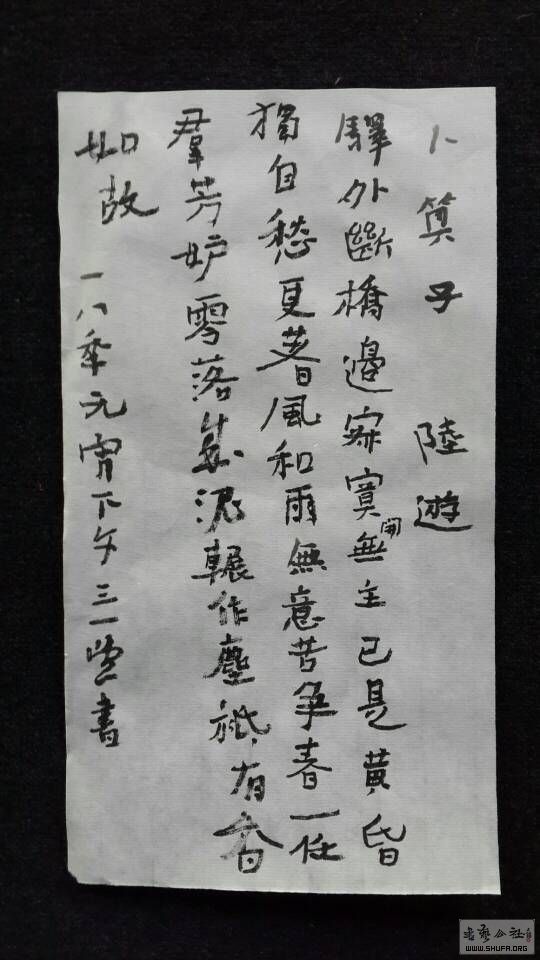 卜算子 陸遊
驛外斷橋邊寂寞開無主已是黃昏
獨自愁更著風和雨無意苦爭春一任
羣芳妒零落成泥輾作塵祇有香
如故 一八年元宵下午三一堂書
书艺公社
WWW.SHUFA.ORG